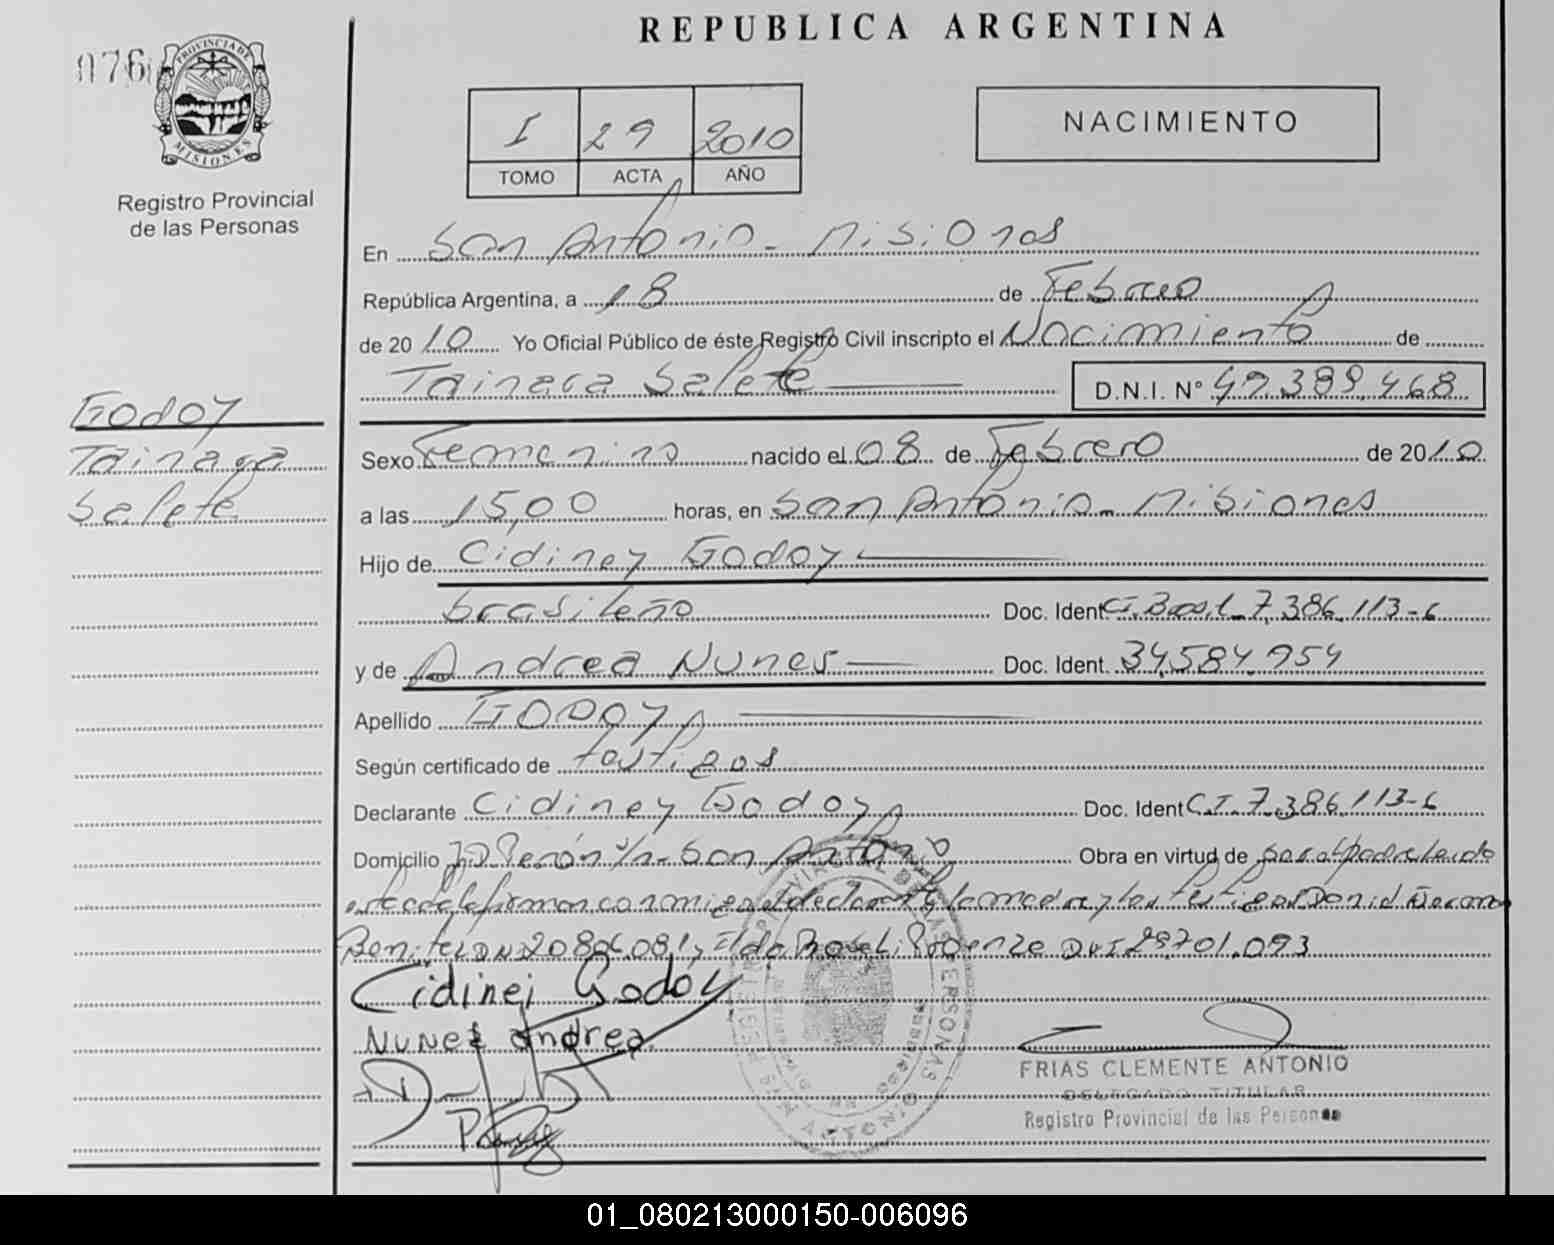 REPUBLICA ARGENTINA
076
PROVINCIA DE
MISIONES
Registro Provincial
de las Personas
I 29 2010
TOMO ACTA AÑO
NACIMIENTO
En San Antonio - Misiones
República Argentina, a 18 de Febrero
de 2010 Yo Oficial Público de éste Registro Civil inscripto el Nacimiento de
Tainara Salete D.N.I. Nº 49.389.468
Godoy
Tainara
Salete
Sexo Femenino nacido el 08 de Febrero de 2010
a las 15,00 horas, en San Antonio - Misiones
Hijo de Cidiney Godoy
brasileño Doc. Ident. C.I. Brasil 7.386.113-6
y de Andrea Nunes Doc. Ident. 34.584.954
Apellido GODOY
Según certificado de testigos
Declarante Cidiney Godoy Doc. Ident C.I. 7.386.113-6
Domicilio JD Perón s/n - San Antonio Obra en virtud de
la madre y los testigos
Benitez DNI 20.806.081 y DNI 29.701.093
Cidinei Godoy
Nunes Andrea
FRIAS CLEMENTE ANTONIO
DELEGADO TITULAR
Registro Provincial de las Personas
01_080213000150-006096